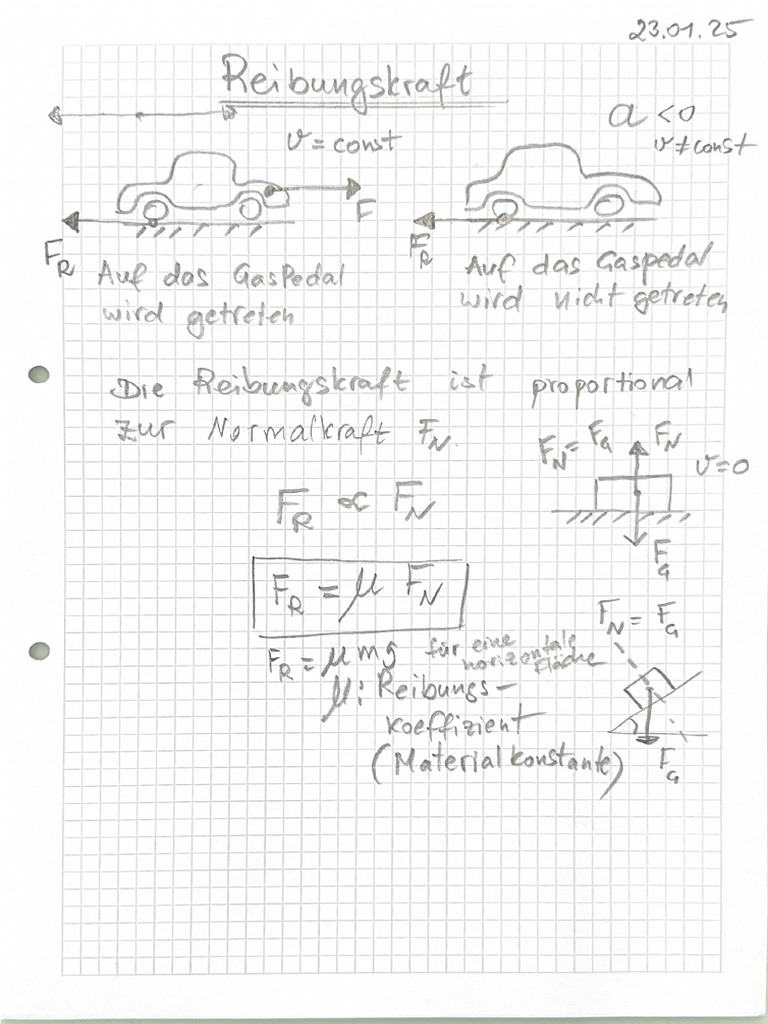 23.01.25
Reibungskraft
a < 0
v = const
v ≠ const
F
F_R
F_R
Auf das GasPedal
wird getreten
Auf das Gaspedal
wird nicht getreten
Die Reibungskraft ist proportional
zur Normalkraft F_N.
F_N = F_G
F_N
v = 0
F_G
F_R ∝ F_N
F_R = μ F_N
F_N = F_G
F_R = μ m g für eine
horizontale
Fläche
μ: Reibungs-
koeffizient
(Materialkonstante)
F_G